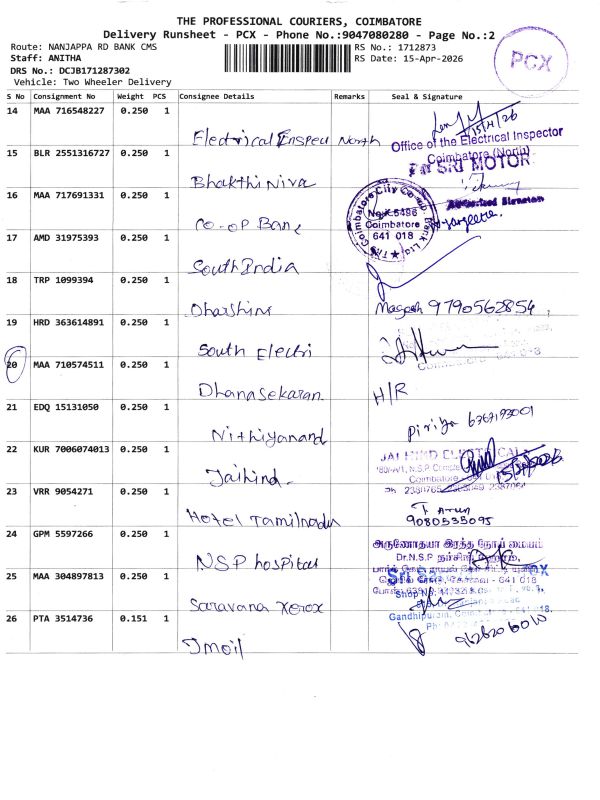 THE PROFESSIONAL COURIERS, COIMBATORE
Delivery Runsheet - PCX - Phone No.:9047080280 - Page No.:2
Route: NANJAPPA RD BANK CMS
RS No.: 1712873
Staff: ANITHA
RS Date: 15-Apr-2026
DRS No.: DCJB171287302
Vehicle: Two Wheeler Delivery
PCX
S No Consignment No Weight PCS Consignee Details Remarks Seal & Signature
14 MAA 716548227 0.250 1
Electrical Inspect North
15/4/26
Office of the Electrical Inspector
Coimbatore (North)
15 BLR 2551316727 0.250 1
Bhakthi Niva
SRI MOTOR
16 MAA 717691331 0.250 1
CO-OP Bank
Coimbatore City Co-op. Bank Ltd.
Coimbatore
641 018
17 AMD 31975393 0.250 1
South India
18 TRP 1099394 0.250 1
Dharshini
Magesh 9790562854
19 HRD 363614891 0.250 1
South Electri
20 MAA 710574511 0.250 1
Dhanasekaran
H/R
21 EDQ 15131050 0.250 1
Nithiyanand
Piriya 6367193001
22 KUR 7006074013 0.250 1
Jaihind
JAI HIND ELECTRICALS
Coimbatore
23 VRR 9054271 0.250 1
Hotel Tamilnadu
T Arun
9080535095
24 GPM 5597266 0.250 1
NSP hospital
அருணோதயா இரத்த நோய் மையம்
Dr.N.S.P
641 018
25 MAA 304897813 0.250 1
Saravana Xerox
Gandhipuram
26 PTA 3514736 0.151 1
Jmoil